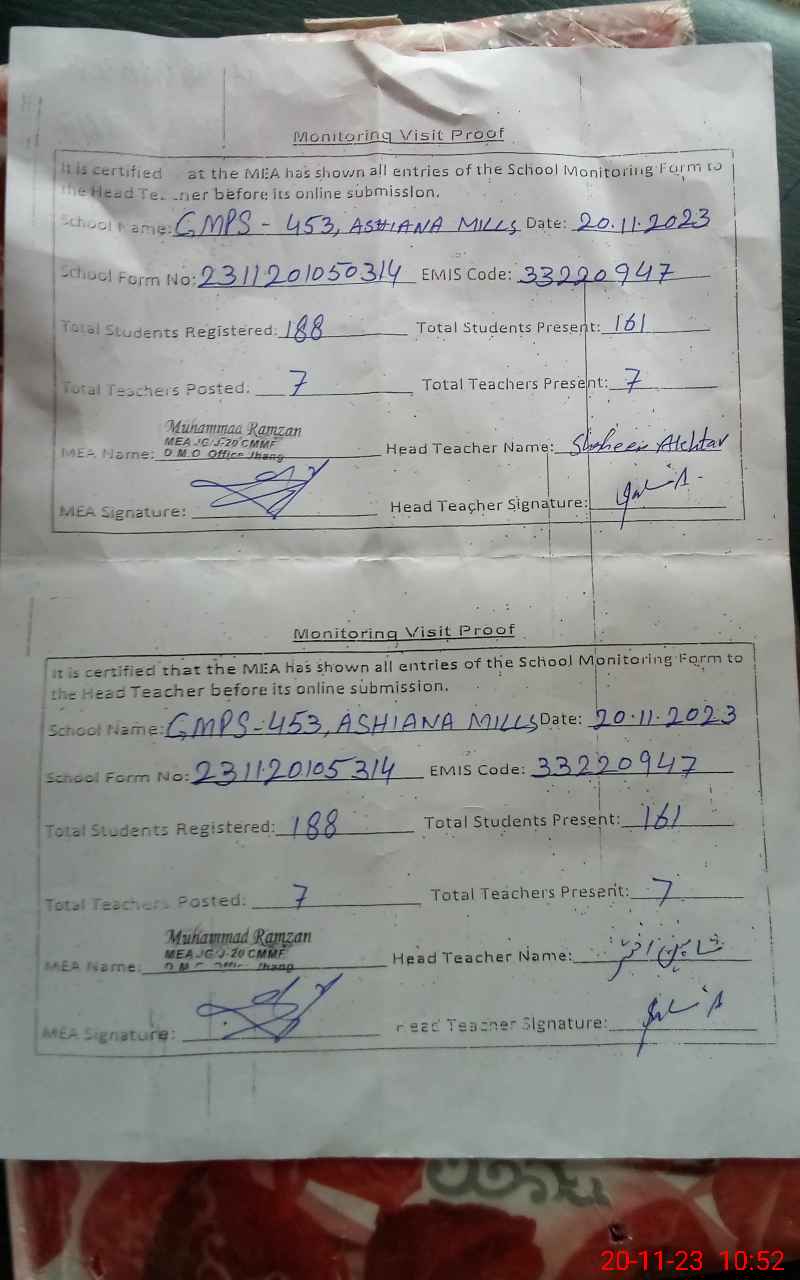 Monitoring Visit Proof
It is certified at the MEA has shown all entries of the School Monitoring Form to
the Head Teacher before its online submission.
School Name: GMPS - 453, ASHIANA MILLS Date: 20.11.2023
School Form No: 2311201050314 EMIS Code: 33220947
Total Students Registered: 188 Total Students Present: 161
Total Teachers Posted: 7 Total Teachers Present: 7
Muhammad Ramzan
MEA JG/J-20 CMMF
MEA Name: D.M.O Office Jhang Head Teacher Name: Shaheen Akhtar
MEA Signature: Head Teacher Signature:
Monitoring Visit Proof
It is certified that the MEA has shown all entries of the School Monitoring Form to
the Head Teacher before its online submission.
School Name: GMPS-453, ASHIANA MILLS Date: 20.11.2023
School Form No: 231120105314 EMIS Code: 33220947
Total Students Registered: 188 Total Students Present: 161
Total Teachers Posted: 7 Total Teachers Present: 7
Muhammad Ramzan
MEA JG/J-20 CMMF
MEA Name: D.M.O Office Jhang Head Teacher Name: شاہین اختر
MEA Signature: Head Teacher Signature:
20-11-23 10:52